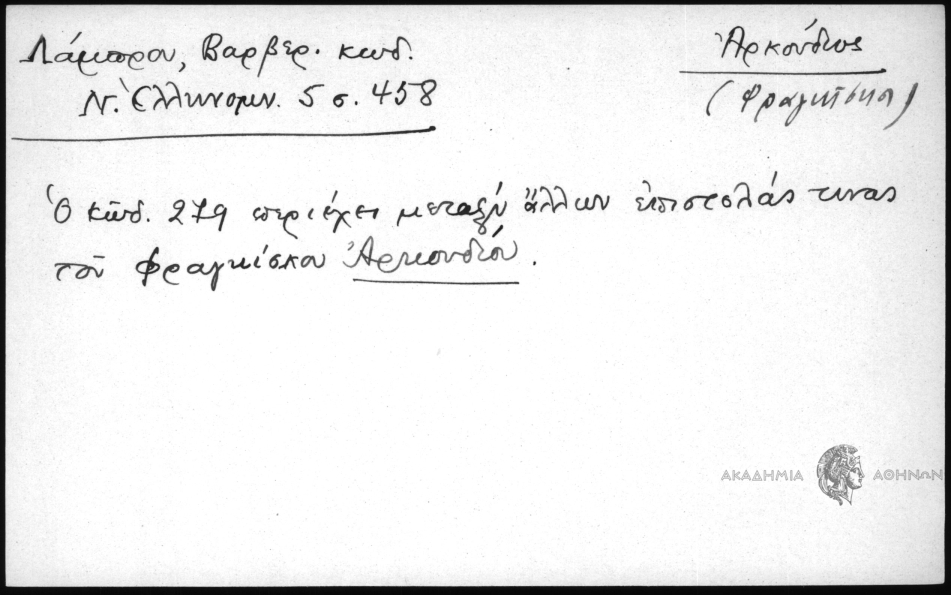 Λάμπρου, Βαρβερ. κωδ.
Ν. Ἑλληνομν. 5 σ. 458
Ἀρκούδιος
(Φραγκῖσκος)
Ὁ κῶδ. 279 περιέχει μεταξὺ ἄλλων ἐπιστολάς τινας
τοῦ Φραγκίσκου Ἀρκουδίου.
ΑΚΑΔΗΜΙΑ ΑΘΗΝΩΝ